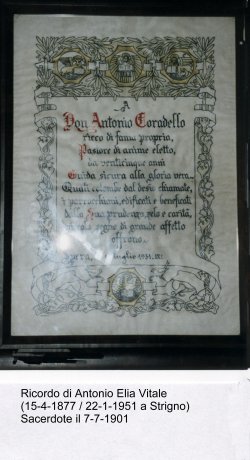 A
Don Antonio Coradello
ricco di fama propria,
Pastore di anime eletto,
da venticinque anni
Guida sicura alla gloria vera.
Quali colombe dal desio chiamate,
i parrocchiani, edificati e beneficati
dalla Sua prudenza, zelo e carità,
segno di grande affetto
offrono.
luglio 1931. IX.
Ricordo di Antonio Elia Vitale
(15-4-1877 / 22-1-1951 a Strigno)
Sacerdote il 7-7-1901